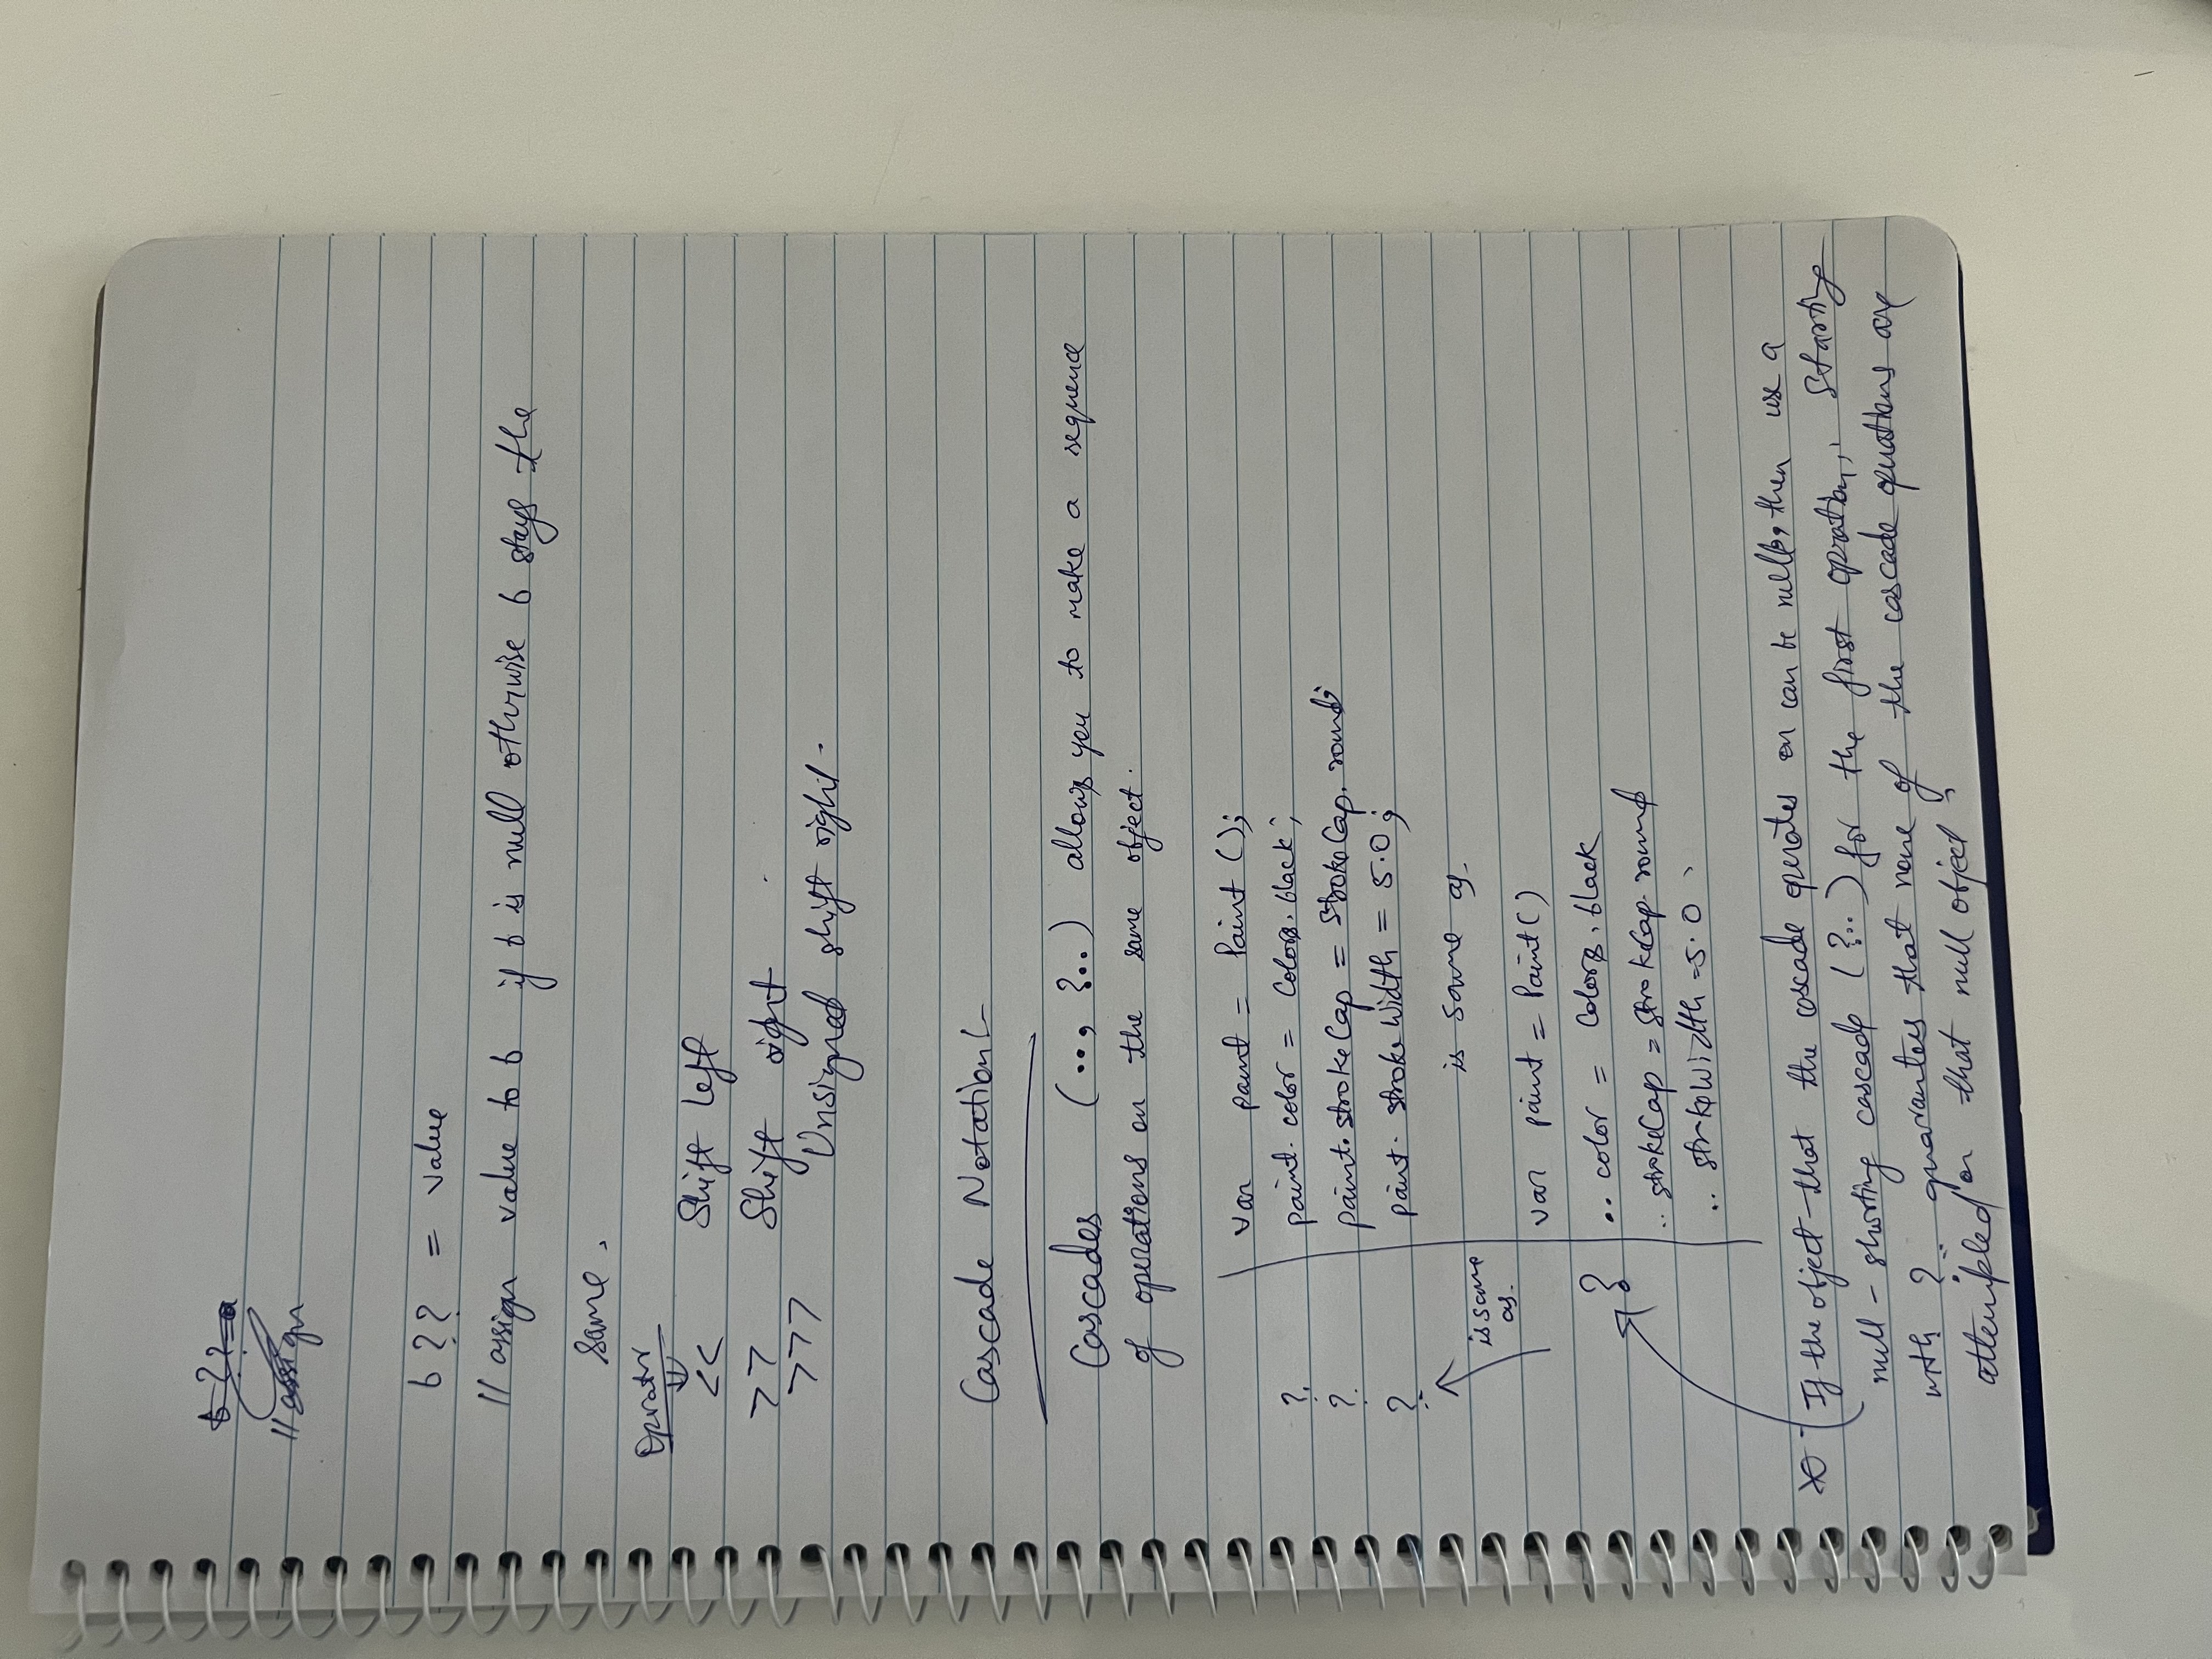 b ??= a
// assign
b ?? = value
// assign value to b if b is null otherwise b stays the
same.
Oprator
<< Shift left
>> Shift right
>>> Unsigned shift right.
Cascade Notation:-
Cascades (.., ?..) allows you to make a sequence
of operations on the same object.
var paint = Paint ();
?. paint.color = Colors.black;
?. paint.strokeCap = StrokeCap.round;
?. paint.strokeWidth = 5.0;
is same as.
is same
as.
var paint = Paint()
? .. color = Colors.black
.. strokeCap = StrokeCap.round
.. strokeWidth = 5.0 ;
If the object that the cascade operates on can be null, then use a
null-shorting cascade (?..) for the first opration, Starting
with ?.. guarantees that none of the cascade operations are
attempted on that null object.